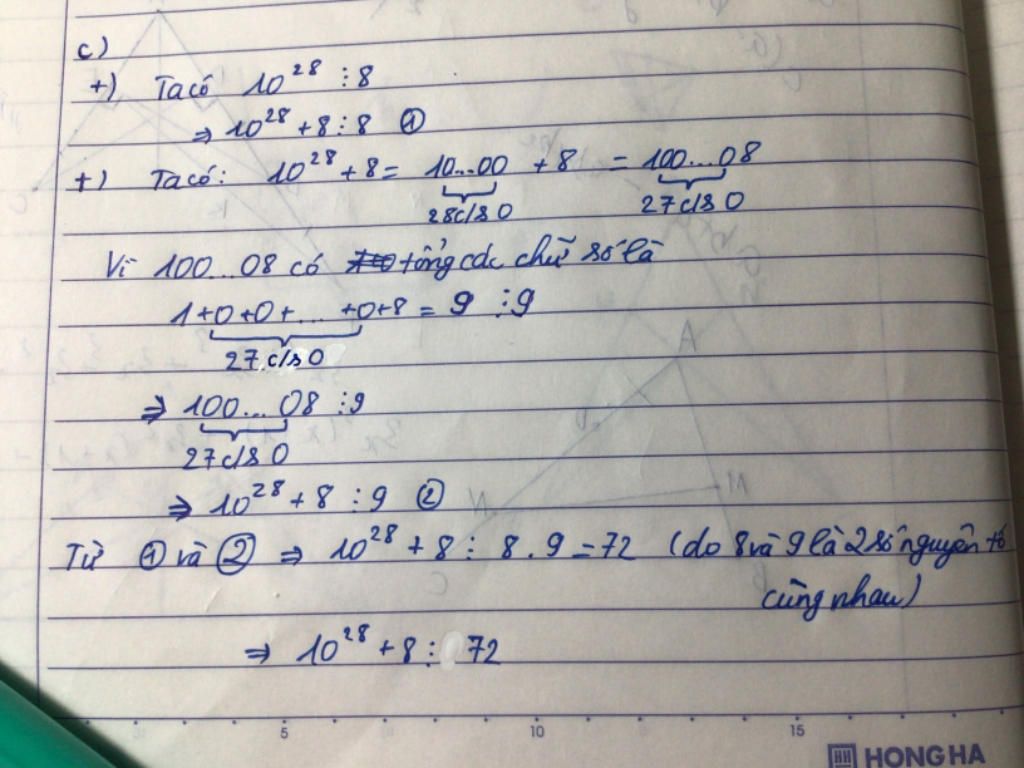 c)
+) Ta có 10²⁸ ⋮ 8
⇒ 10²⁸ + 8 ⋮ 8 ①
+) Ta có: 10²⁸ + 8 = 10...00 + 8 = 100...08
28 c/s 0 27 c/s 0
Vì 100...08 có tổng các chữ số là
1+0+0+...+0+8 = 9 ⋮ 9
27 c/s 0
⇒ 100...08 ⋮ 9
27 c/s 0
⇒ 10²⁸ + 8 ⋮ 9 ②
Từ ① và ② ⇒ 10²⁸ + 8 ⋮ 8 . 9 = 72 (do 8 và 9 là 2 số nguyên tố
cùng nhau)
⇒ 10²⁸ + 8 ⋮ 72
5 10 15
HONG HA